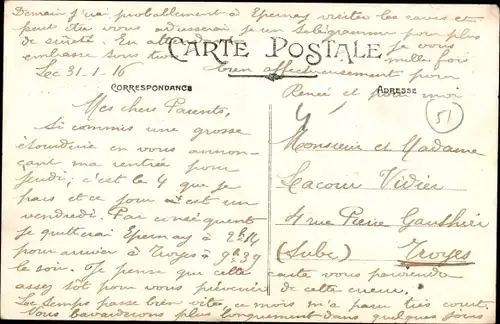 Demain j'irai probablement à Epernay visiter les caves et
peut être vous adresserai je un télégramme pour plus
de sûreté. En je vous
embrasse mille fois
bien affectueusement pour
Loc 31-1-16 Renée et pour moi
CARTE POSTALE
CORRESPONDANCE
ADRESSE
51
Mes chers Parents,
Si commis une grosse
étourderie en vous annon-
çant ma rentrée pour
jeudi; c'est le 4 que je
pars et ce jour est un
vendredi. Par conséquent
je quitterai Epernay à 2h14
pour arriver à Troyes à 9h39
le soir. Je pense que cette carte vous parviendra
assez tôt pour vous prévenir de cette erreur.
Le temps passe bien vite, ce mois m'a paru très court.
Nous bavarderons plus longuement dans quelques jours
Monsieur et Madame
Lacour Vidier
4 rue Pierre Gauthier
(Aube) Troyes